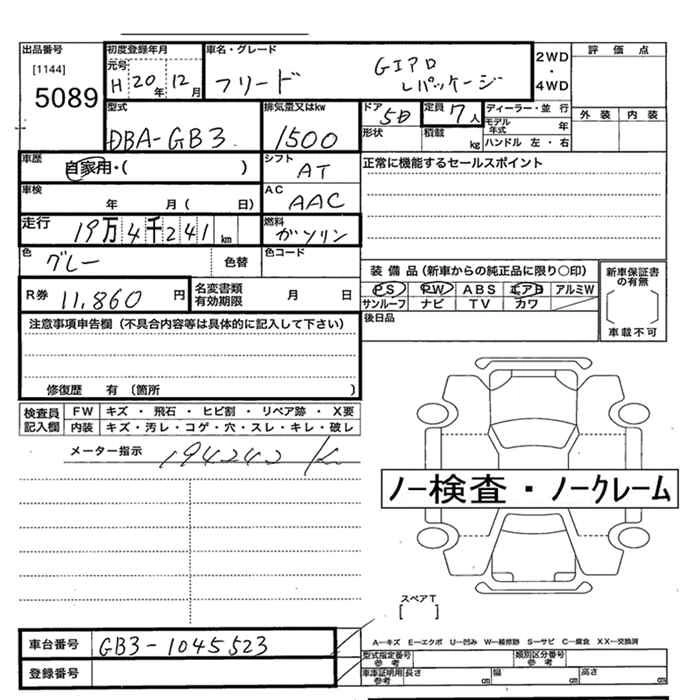 出品番号
[1144]
5089
初度登録年月
元号 H 20年 12月
車名・グレード
フリード GエアロLパッケージ
2WD・4WD
評価点
外装 内装
型式
DBA-GB3
排気量又はkw
1500
ドア 5D
形状
定員 7人
積載 kg
ディーラー・並行
モデル年式 年
ハンドル 左・右
車歴 自家用・( )
シフト
AT
正常に機能するセールスポイント
車検 年 月( 日)
AC
AAC
走行 19万4千241km
燃料
ガソリン
色
グレー 色替
色コード
R券 11,860円
名変書類有効期限 月 日
装備品(新車からの純正品に限り○印)
PS PW ABS エアB アルミW
サンルーフ ナビ TV カワ
後日品
新車保証書の有無
車載不可
注意事項申告欄(不具合内容等は具体的に記入して下さい)
修復歴 有(箇所 )
検査員記入欄
FW キズ・飛石・ヒビ割・リペア跡・X要
内装 キズ・汚レ・コゲ・穴・スレ・キレ・破レ
メーター指示 194242 K
ノー検査・ノークレーム
スペアT
[ ]
車台番号 GB3-1045523
登録番号
A―キズ E―エクボ U―凹み W―補修跡 S―サビ C―腐食 XX―交換済
型式指定番号 参考
類別区分番号 参考
車庫証明用 参考 長さ cm 幅 cm 高さ cm